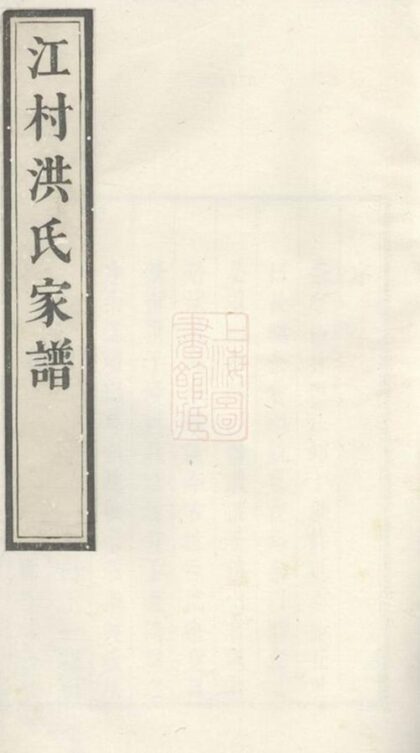 江村洪氏家譜
上海圖
書館藏